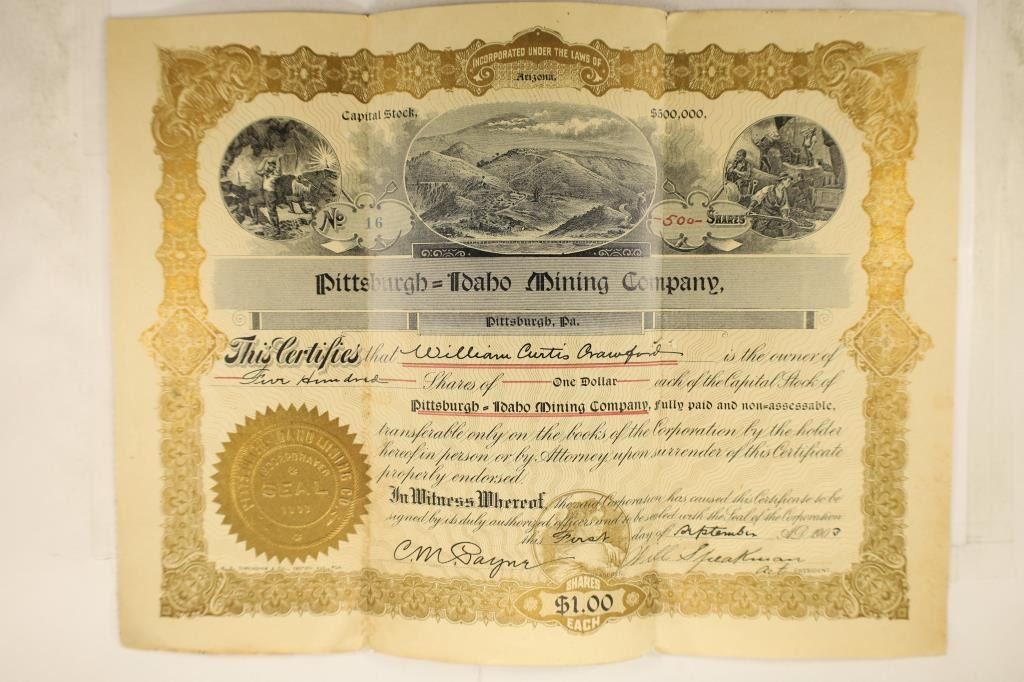 INCORPORATED UNDER THE LAWS OF
Arizona.
Capital Stock, $500,000.
No 16 -500- SHARES
Pittsburgh=Idaho Mining Company,
Pittsburgh, Pa.
This Certifies that William Curtis Crawford is the owner of
Five Hundred Shares of One Dollar each of the Capital Stock of
Pittsburgh=Idaho Mining Company, fully paid and non=assessable,
transferable only on the books of the Corporation by the holder
hereof in person or by Attorney upon surrender of this Certificate
properly endorsed.
In Witness Whereof, the said Corporation has caused this Certificate to be
signed by its duly authorized officers and to be sealed with the Seal of the Corporation
this First day of September A.D. 1903
C M Payne Will Speakman
PRESIDENT.
INCORPORATED
&
SEAL
SHARES
$1.00
EACH